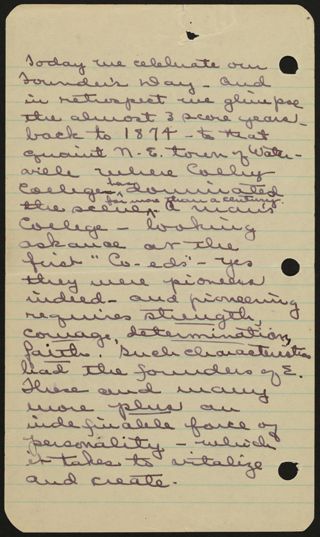 Today we celebrate our
Founder's Day - and
in retrospect we glimpse
the almost 3 score years -
back to 1874 - to that
quaint N.E. town of Water-
ville where Colby
College had dominated
for more than a century.
the scene. A man's
College - looking
askance at the
first "Co-eds" - yes
they were pioneers
indeed - and pioneering
requires strength,
courage, determination,
faith. Such characteristics
had the founders of E.
These and many
more plus an
indefinable force of
personality - which
it takes to vitalize
and create.